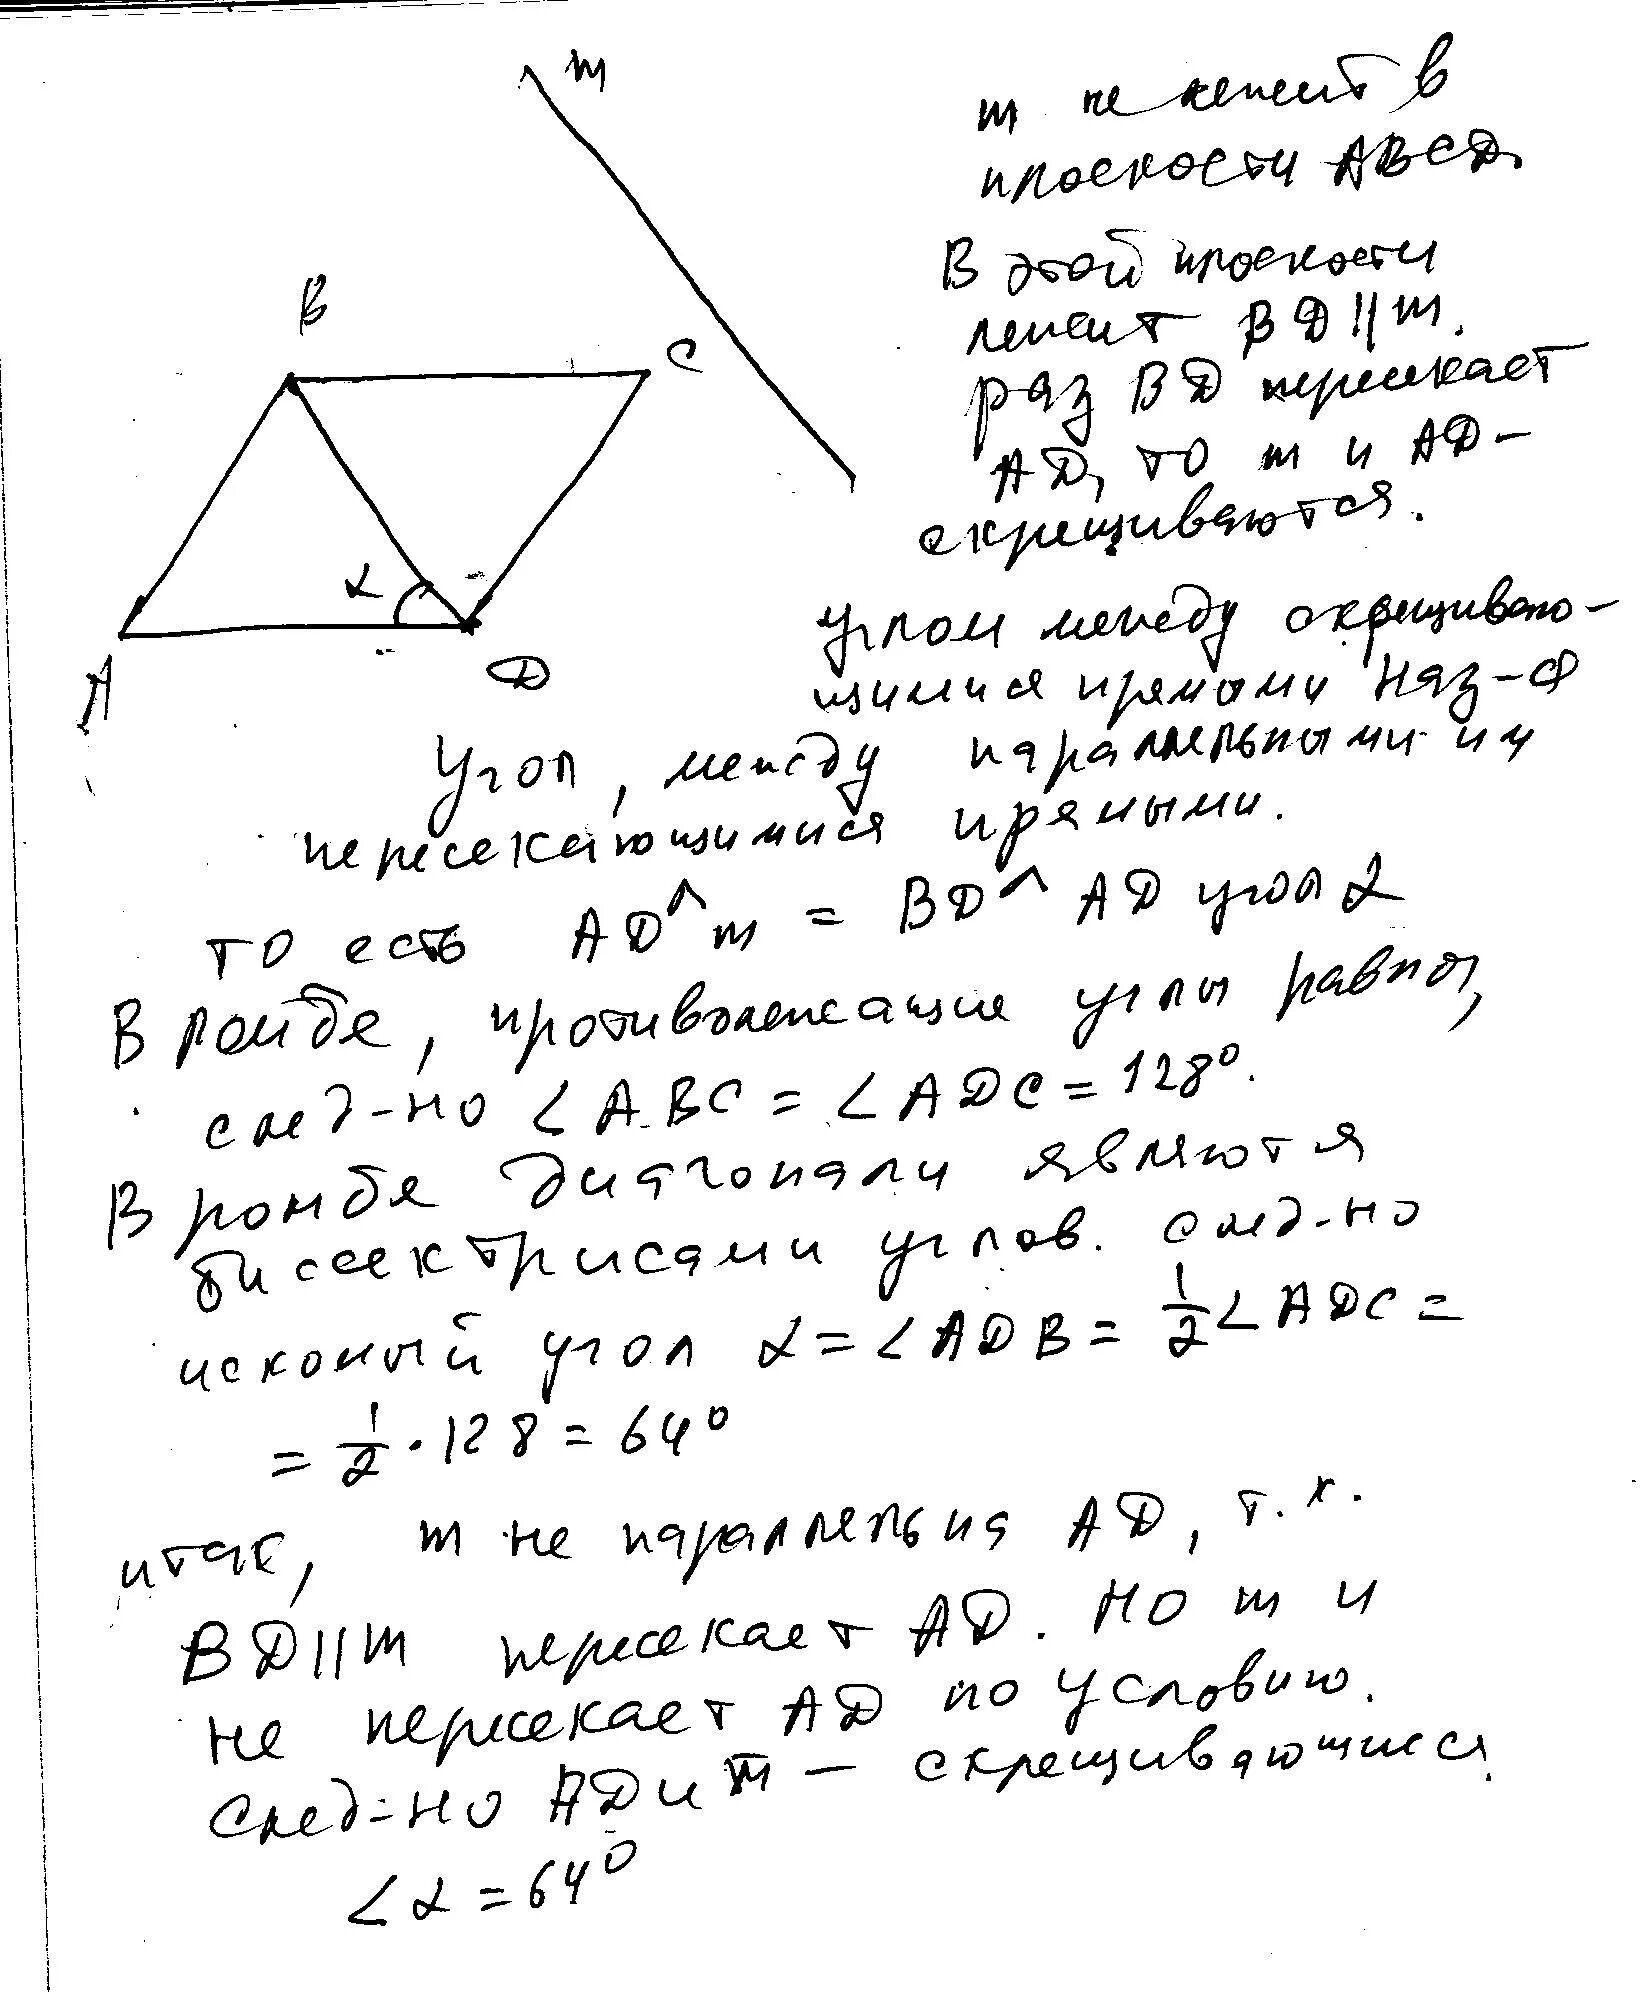 m
m не лежит в
плоскости ABCD.
В этой плоскости
лежит BD || m.
раз BD пересекает
AD, то m и AD –
скрещиваются.
B
C
α
A
D
углом между скрещиваю-
щимися прямыми наз-ся
угол, между параллельными им
пересекающимися прямыми.
то есть AD^m = BD^AD угол α
В ромбе, противолежащие углы равны,
след-но ∠ABC = ∠ADC = 128°.
В ромбе диагонали являются
биссектрисами углов. след-но
искомый угол α = ∠ADB = 1/2 ∠ADC =
= 1/2 · 128 = 64°
итак, m не параллельна AD, т.к.
BD || m пересекает AD. Но m и
не пересекает AD по условию.
След-но AD и m – скрещивающиеся.
∠α = 64°